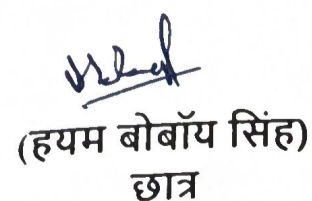 (हयम बोबॉय सिंह)
छात्र